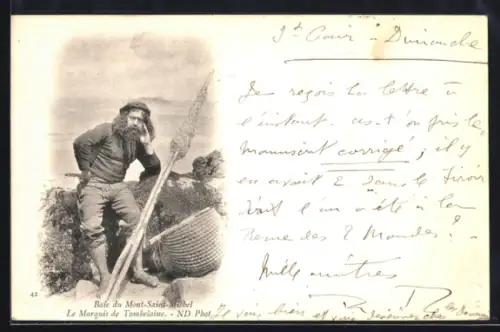 St Cair - Dimanche
Je reçois ta lettre à
l'instant. as-t'u pris le
manuscrit corrigé ; il y
en avait 2 dans le tiroir
dont l'un a été à la
Revue des 2 Mondes?
Mille
Je vais bien et vous
42
Baie du Mont-Saint-Michel
Le Marquis de Tombelaine. - ND Phot.